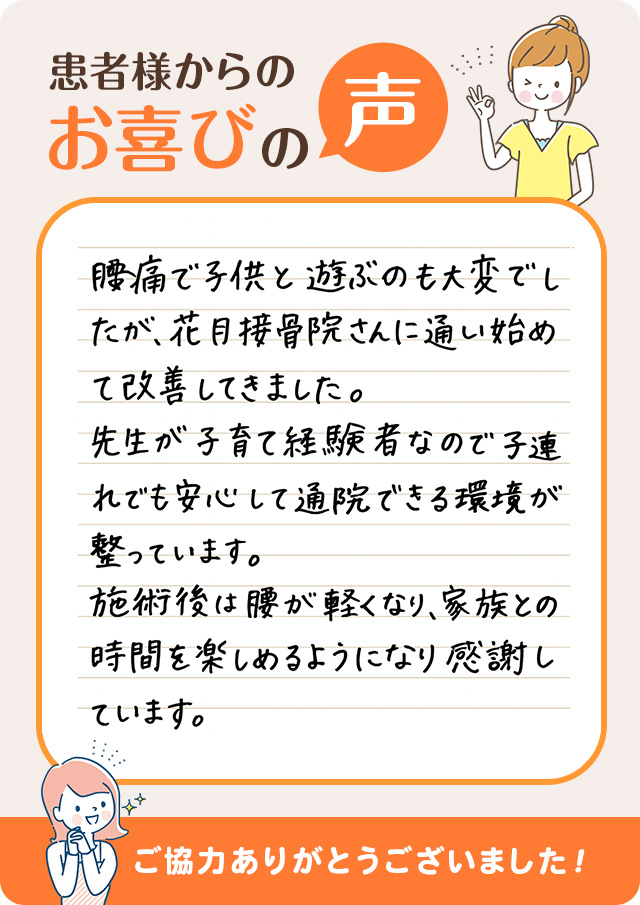 患者様からの
お喜びの声
腰痛で子供と遊ぶのも大変でし
たが、花月接骨院さんに通い始め
て改善してきました。
先生が子育て経験者なので子連
れでも安心して通院できる環境が
整っています。
施術後は腰が軽くなり、家族との
時間を楽しめるようになり感謝し
ています。
ご協力ありがとうございました!